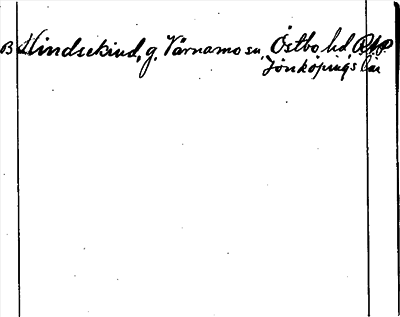 B Hindsekind, g. Värnamo sn, Östbo hd
Jönköpings län